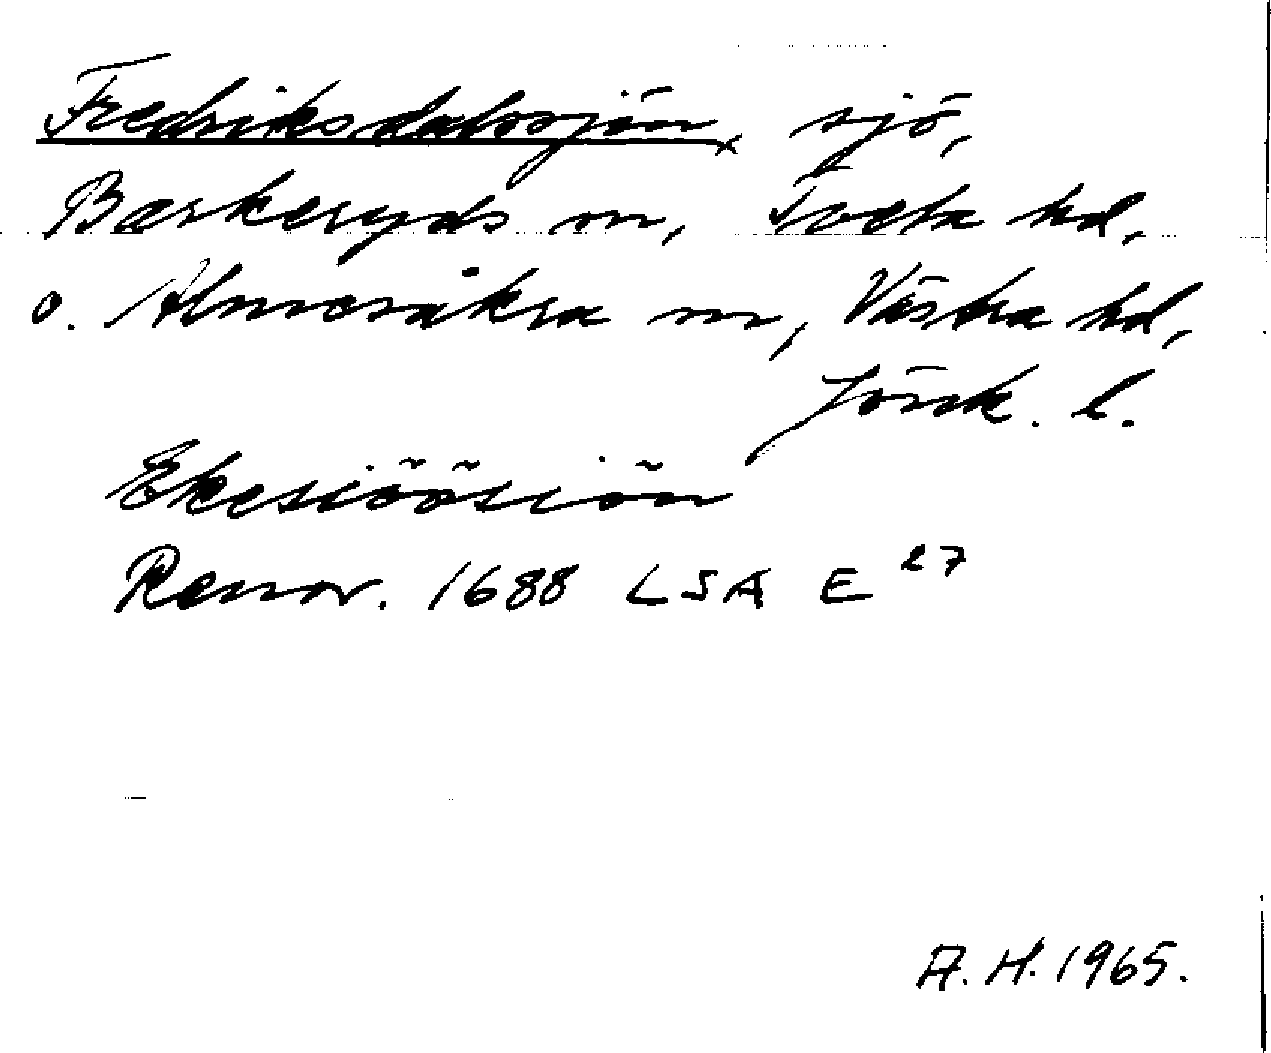 Fredriksdalssjön, sjö,
Barkeryds sn, Tveta hd,
o. Almesåkra sn, Västra hd,
Jönk. l.
Ekesiöösiön
Renov. 1688 LSA E 27
A. H. 1965.